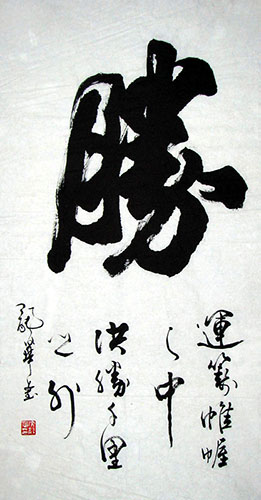 勝
運籌帷幄
之中
決勝千里
之外
龍華書